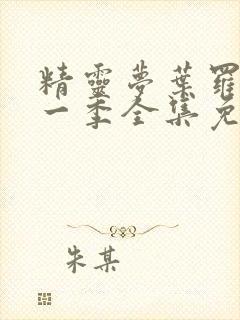 精靈夢葉羅
一季全集免
朱某